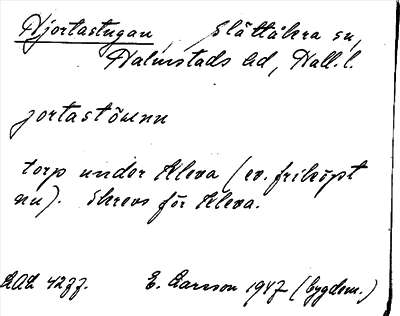 Hjortastugan, Slättåkra sn,
Halmstads hd, Hall. l.
jortastōwnn
torp under Kleva (ev. friköpt
nu). Skrevs för Kleva.
E. Larsson 1947 (bygdem.)